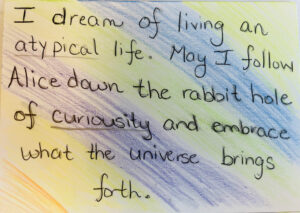 I dream of living an
atypical life. May I follow
Alice down the rabbit hole
of curiousity and embrace
what the universe brings
forth.